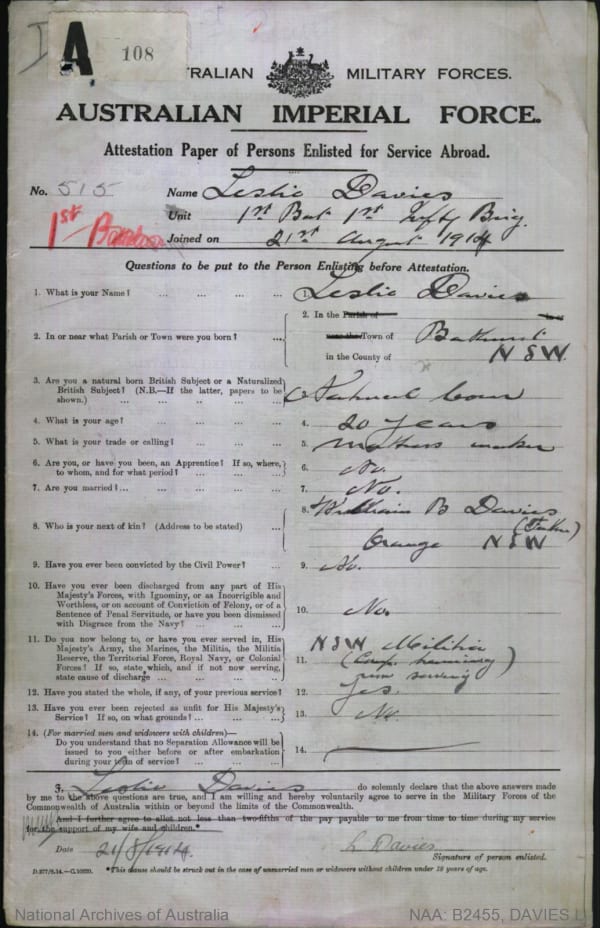 A 108
TRALIAN MILITARY FORCES.
AUSTRALIAN IMPERIAL FORCE.
Attestation Paper of Persons Enlisted for Service Abroad.
No. 515 Name Leslie Davies
Unit 1st Bat 1st Infty Brig.
1st
Joined on 21st August 1914
Questions to be put to the Person Enlisting before Attestation.
1. What is your Name? ... ... ... ... 1. Leslie Davies
2. In or near what Parish or Town were you born? ... 2. In the Parish of
near the Town of Bathurst
in the County of NSW.
3. Are you a natural born British Subject or a Naturalized
British Subject? (N.B.—If the latter, papers to be
shown.) ... ... ... ... Natural born
4. What is your age? ... ... ... ... 4. 20 years
5. What is your trade or calling? ... ... ... 5. maker
6. Are you, or have you been, an Apprentice? If so, where,
to whom, and for what period? ... ... ... 6. No.
7. Are you married? ... ... ... ... 7. No.
8. Who is your next of kin? (Address to be stated) ... 8. William B Davies
(Father)
Orange NSW
9. Have you ever been convicted by the Civil Power? ... 9. No.
10. Have you ever been discharged from any part of His
Majesty's Forces, with Ignominy, or as Incorrigible and
Worthless, or on account of Conviction of Felony, or of a
Sentence of Penal Servitude, or have you been dismissed
with Disgrace from the Navy? ... ... ... 10. No.
11. Do you now belong to, or have you ever served in, His
Majesty's Army, the Marines, the Militia, the Militia
Reserve, the Territorial Force, Royal Navy, or Colonial
Forces? If so, state which, and if not now serving,
state cause of discharge ... ... ... 11. NSW Militia
serving)
12. Have you stated the whole, if any, of your previous service? 12. Yes.
13. Have you ever been rejected as unfit for His Majesty's
Service? If so, on what grounds? ... ... ... 13. No.
14. (For married men and widowers with children)—
Do you understand that no Separation Allowance will be
issued to you either before or after embarkation
during your term of service? ... ... ... 14.
I, Leslie Davies do solemnly declare that the above answers made
by me to the above questions are true, and I am willing and hereby voluntarily agree to serve in the Military Forces of the
Commonwealth of Australia within or beyond the limits of the Commonwealth.
And I further agree to allot not less than two-fifths of the pay payable to me from time to time during my service
for the support of my wife and children.*
Date 21/8/1914. L Davies
Signature of person enlisted.
D.277/8.14.—C.10220. *This clause should be struck out in the case of unmarried men or widowers without children under 18 years of age.
National Archives of Australia NAA: B2455, DAVIES L